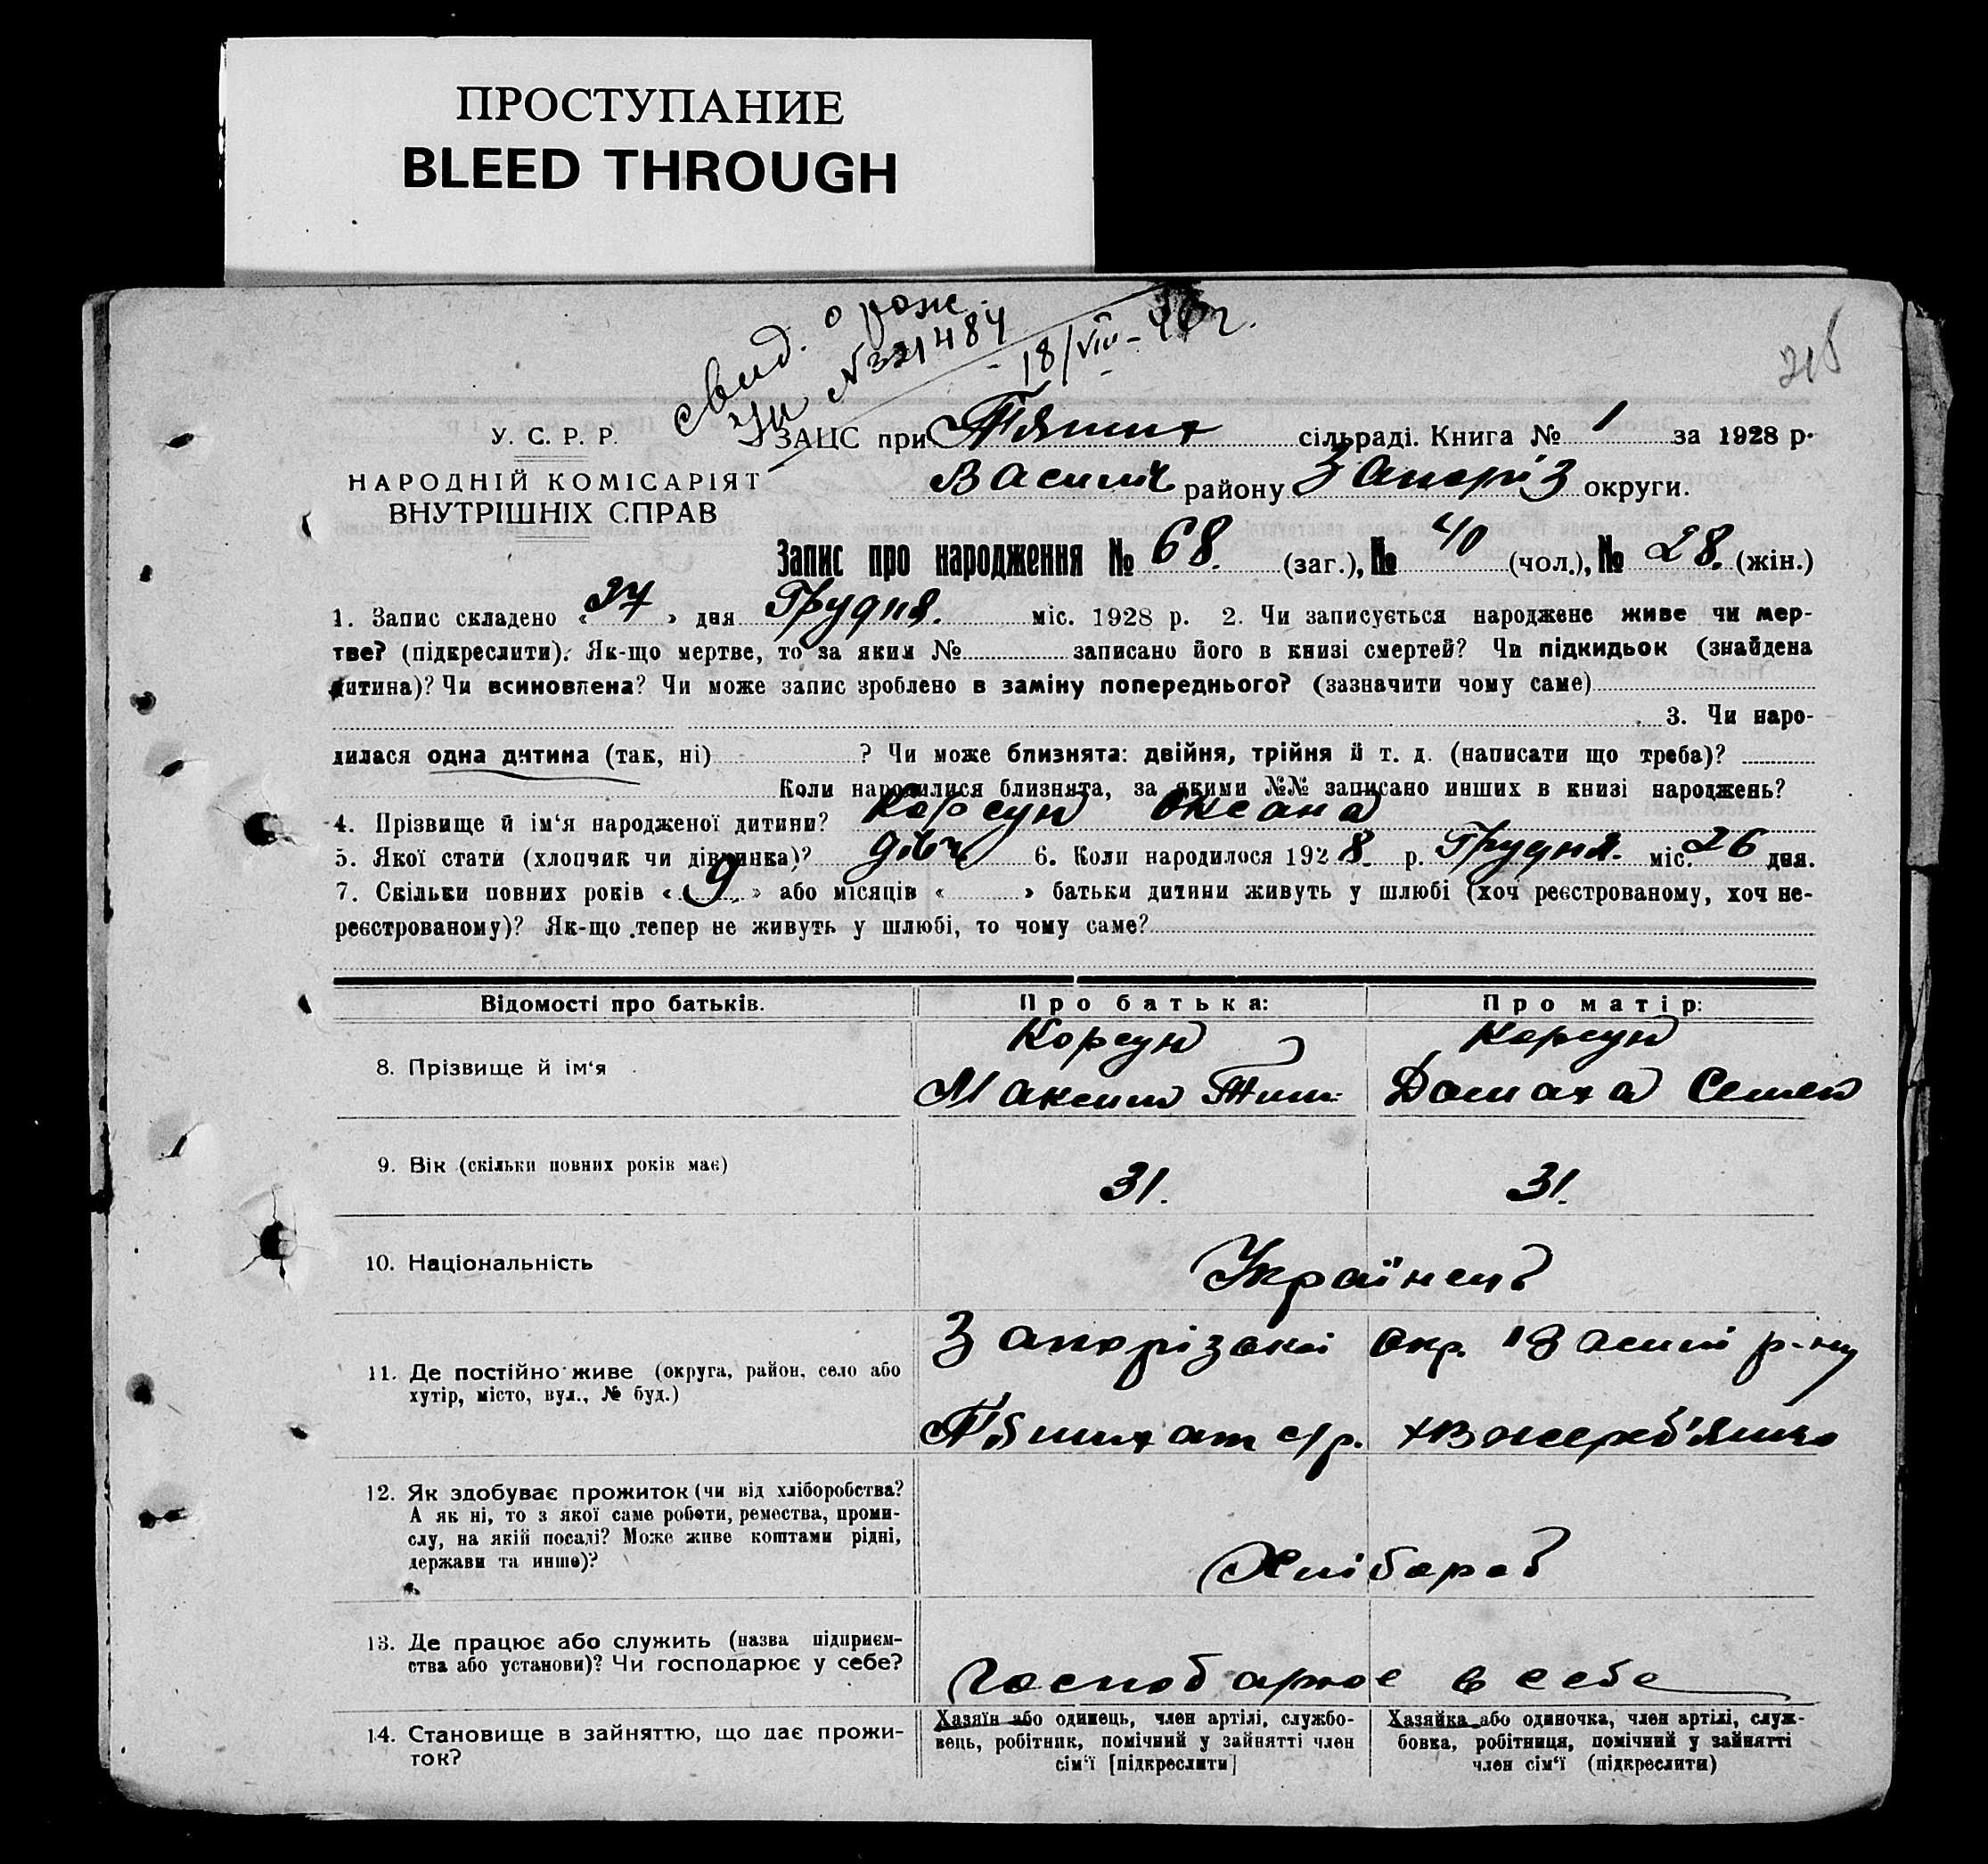 ПРОСТУПАНИЕ
BLEED THROUGH
свид. о рож.
№321484
18/VIII-46 г.
215
У. С. Р. Р.
НАРОДНІЙ КОМІСАРІЯТ
ВНУТРІШНІХ СПРАВ
ЗАЦС при П'ятих сільраді. Книга № 1 за 1928 р.
Василів району Запоріз округи.
Запис про народження № 68. (заг.), № 40 (чол.), № 28. (жін.)
1. Запис складено « 27 » дня Грудня. міс. 1928 р. 2. Чи записується народжене живе чи мер-
тве? (підкреслити). Як-що мертве, то за яким № записано його в книзі смертей? Чи підкидьок (знайдена
дитина)? Чи всиновлена? Чи може запис зроблено в заміну попереднього? (зазначити чому саме)
3. Чи наро-
дилася одна дитина (так, ні) ? Чи може близнята: двійня, трійня й т. д. (написати що треба)?
Коли народилися близнята, за якими №№ записано инших в книзі народжень?
4. Прізвище й ім‘я народженої дитини? Корсун Оксана
5. Якої стати (хлопчик чи дівчинка)? дівч 6. Коли народилося 1928. р. Грудня. міс. 26 дня.
7. Скільки повних років « 9 » або місяців « » батьки дитини живуть у шлюбі (хоч реєстрованому, хоч не-
реєстрованому)? Як-що тепер не живуть у шлюбі, то чому саме?
Відомості про батьків. Про батька: Про матір:
8. Прізвище й ім‘я
Корсун Корсун
Максим Тим. Домаха Семен
9. Вік (скільки повних років має) 31. 31.
10. Національність Українец
11. Де постійно живе (округа, район, село або
хутір, місто, вул., № буд.)
Запорізькі окр. Васил р-ну
с/р.
12. Як здобуває прожиток (чи від хліборобства?
А як ні, то з якої саме роботи, ремества, проми-
слу, на якій посаді? Може живе коштами рідні,
держави та инше)?
Хлібороб
13. Де працює або служить (назва підприєм-
ства або установи)? Чи господарює у себе?
Господарює в себе
14. Становище в зайняттю, що дає прожи-
ток?
Хазяїн або одинець, член артілі, службо-
вець, робітник, помічний у зайнятті член
сім‘ї [підкреслити]
Хазяйка або одиночка, член артілі, служ-
бовка, робітниця, помічний у зайнятті
член сім‘ї (підкреслити)